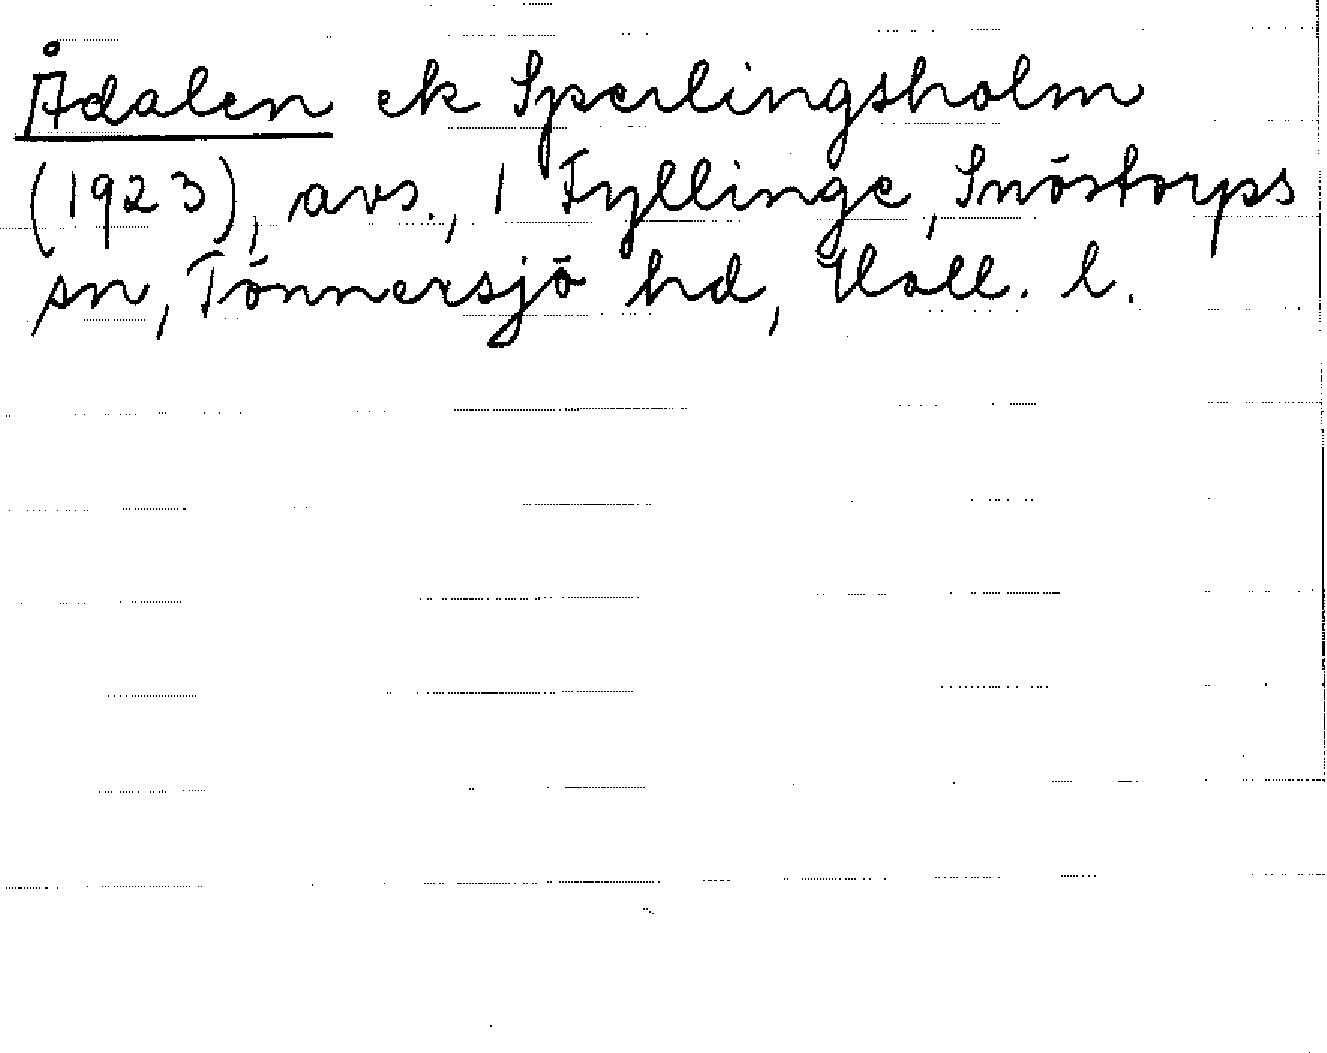 Ådalen ek Sperlingsholm
(1923), avs., 1 Fyllinge, Snöstorps
sn, Tönnersjö hd, Hall. l.